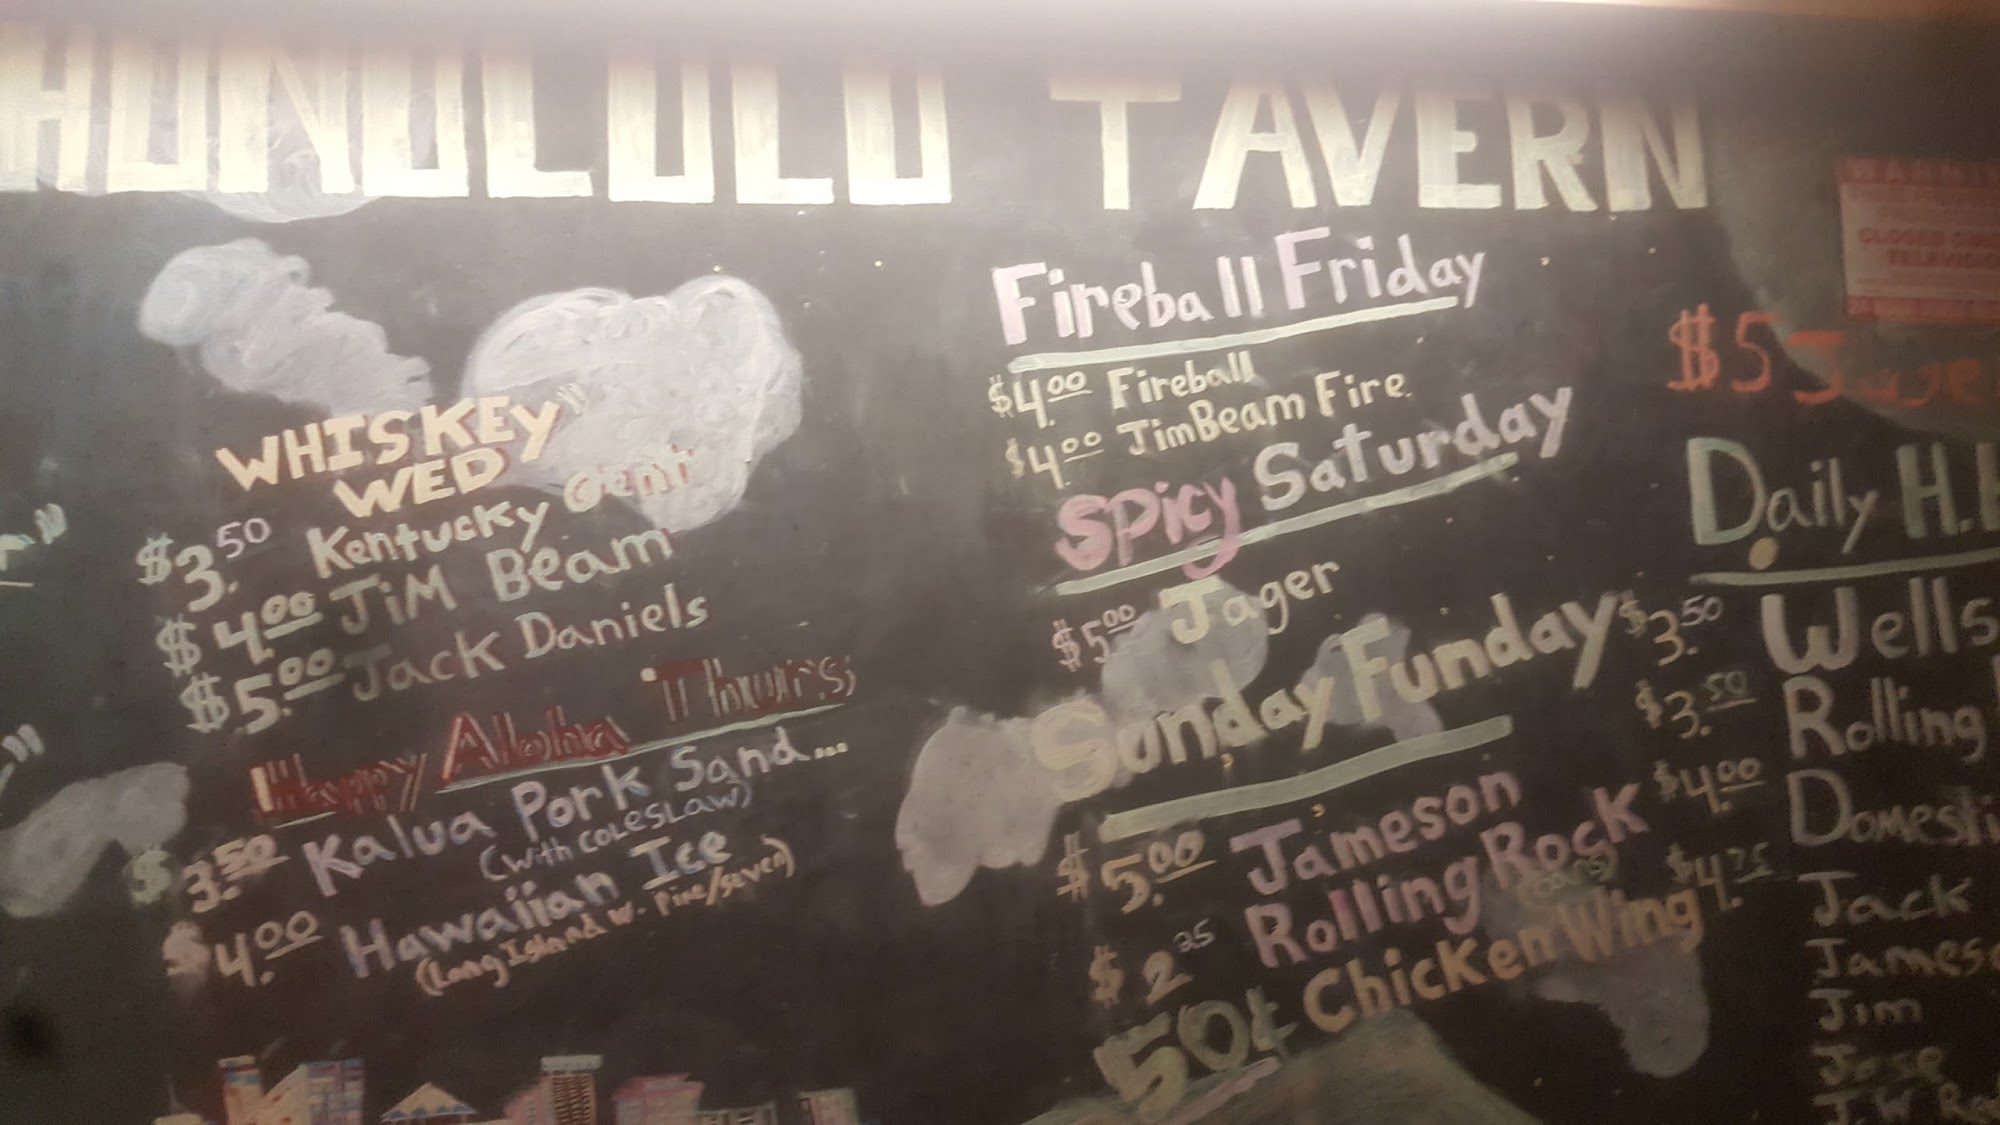 HONOLULU TAVERN
WHISKEY"
WED
$3.50 Kentucky Gent
$4.00 JiM Beam
$5.00 Jack Daniels
Happy Aloha Thurs;
$3.50 Kalua Pork Sand...
(with coleslaw)
$4.00 Hawaiian Ice
(Long Island w. Pine/seven)
Fireball Friday
$4.00 Fireball
$4.00 JimBeam Fire
Spicy Saturday
$5.00 Jager
Sunday Funday
$5.00 Jameson
$2.25 Rolling Rock
(cans)
50¢ Chicken Wing
CLOSED
TELEVISIO
$5 Jage
Daily H.H
$3.50 Wells
$3.50 Rolling
$4.00 Domesti
$4.75 Jack
Jameso
Jim
Jose
J.W